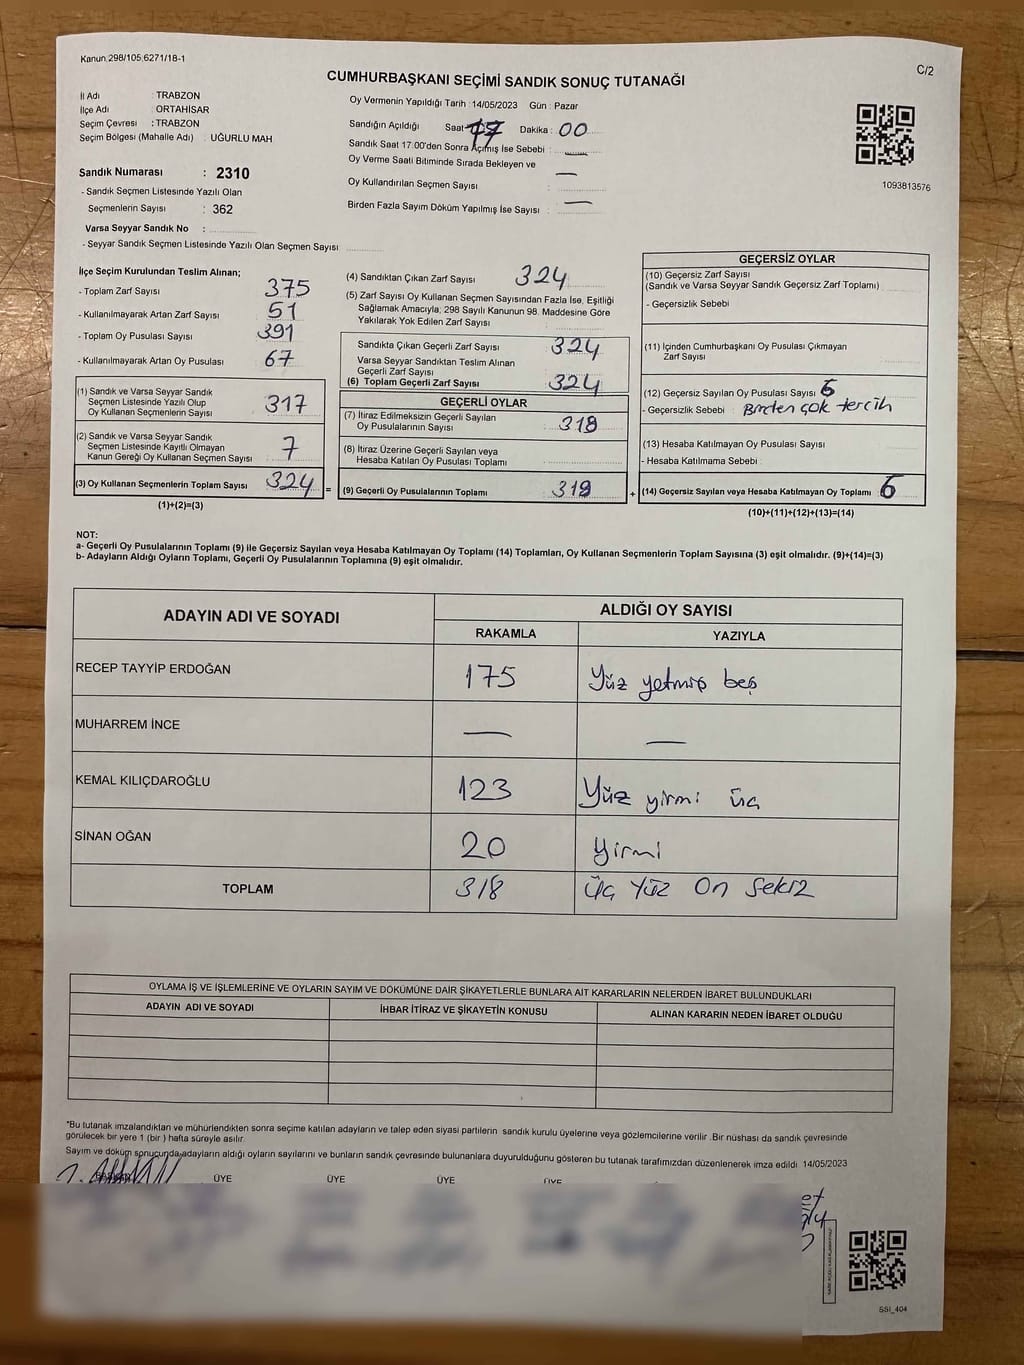 Kanun 298/105,6271/18-1
C/2
CUMHURBAŞKANI SEÇİMİ SANDIK SONUÇ TUTANAĞI
İl Adı : TRABZON
İlçe Adı : ORTAHİSAR
Seçim Çevresi : TRABZON
Seçim Bölgesi (Mahalle Adı) : UĞURLU MAH
Sandık Numarası : 2310
- Sandık Seçmen Listesinde Yazılı Olan
Seçmenlerin Sayısı : 362
Varsa Seyyar Sandık No :
- Seyyar Sandık Seçmen Listesinde Yazılı Olan Seçmen Sayısı
Oy Vermenin Yapıldığı Tarih : 14/05/2023 Gün : Pazar
Sandığın Açıldığı Saat 17 Dakika : 00
Sandık Saat 17:00'den Sonra Açımış İse Sebebi : —
Oy Verme Saati Bitiminde Sırada Bekleyen ve
Oy Kullandırılan Seçmen Sayısı : —
Birden Fazla Sayım Döküm Yapılmış İse Sayısı : —
1093813576
İlçe Seçim Kurulundan Teslim Alınan;
- Toplam Zarf Sayısı 375
- Kullanılmayarak Artan Zarf Sayısı 51
- Toplam Oy Pusulası Sayısı 391
- Kullanılmayarak Artan Oy Pusulası 67
(1) Sandık ve Varsa Seyyar Sandık
Seçmen Listesinde Yazılı Olup
Oy Kullanan Seçmenlerin Sayısı 317
(2) Sandık ve Varsa Seyyar Sandık
Seçmen Listesinde Kayıtlı Olmayan
Kanun Gereği Oy Kullanan Seçmen Sayısı 7
(3) Oy Kullanan Seçmenlerin Toplam Sayısı 324 =
(1)+(2)=(3)
(4) Sandıktan Çıkan Zarf Sayısı 324
(5) Zarf Sayısı Oy Kullanan Seçmen Sayısından Fazla İse, Eşitliği
Sağlamak Amacıyla, 298 Sayılı Kanunun 98. Maddesine Göre
Yakılarak Yok Edilen Zarf Sayısı
Sandıkta Çıkan Geçerli Zarf Sayısı 324
Varsa Seyyar Sandıktan Teslim Alınan
Geçerli Zarf Sayısı
(6) Toplam Geçerli Zarf Sayısı 324
GEÇERLİ OYLAR
(7) İtiraz Edilmeksizin Geçerli Sayılan
Oy Pusulalarının Sayısı 318
(8) İtiraz Üzerine Geçerli Sayılan veya
Hesaba Katılan Oy Pusulası Toplamı
(9) Geçerli Oy Pusulalarının Toplamı 318 +
GEÇERSİZ OYLAR
(10) Geçersiz Zarf Sayısı
(Sandık ve Varsa Seyyar Sandık Geçersiz Zarf Toplamı)
- Geçersizlik Sebebi
(11) İçinden Cumhurbaşkanı Oy Pusulası Çıkmayan
Zarf Sayısı
(12) Geçersiz Sayılan Oy Pusulası Sayısı 6
- Geçersizlik Sebebi : Birden çok tercih
(13) Hesaba Katılmayan Oy Pusulası Sayısı
- Hesaba Katılmama Sebebi
(14) Geçersiz Sayılan veya Hesaba Katılmayan Oy Toplamı 6
(10)+(11)+(12)+(13)=(14)
NOT:
a- Geçerli Oy Pusulalarının Toplamı (9) ile Geçersiz Sayılan veya Hesaba Katılmayan Oy Toplamı (14) Toplamları, Oy Kullanan Seçmenlerin Toplam Sayısına (3) eşit olmalıdır. (9)+(14)=(3)
b- Adayların Aldığı Oyların Toplamı, Geçerli Oy Pusulalarının Toplamına (9) eşit olmalıdır.
ADAYIN ADI VE SOYADI
ALDIĞI OY SAYISI
RAKAMLA YAZIYLA
RECEP TAYYİP ERDOĞAN 175 Yüz yetmiş beş
MUHARREM İNCE — —
KEMAL KILIÇDAROĞLU 123 Yüz yirmi üç
SİNAN OĞAN 20 yirmi
TOPLAM 318 Üç Yüz On Sekiz
OYLAMA İŞ VE İŞLEMLERİNE VE OYLARIN SAYIM VE DÖKÜMÜNE DAİR ŞİKAYETLERLE BUNLARA AİT KARARLARIN NELERDEN İBARET BULUNDUKLARI
ADAYIN ADI VE SOYADI İHBAR İTİRAZ VE ŞİKAYETİN KONUSU ALINAN KARARIN NEDEN İBARET OLDUĞU
"Bu tutanak imzalandıktan ve mühürlendikten sonra seçime katılan adayların ve talep eden siyasi partilerin sandık kurulu üyelerine veya gözlemcilerine verilir .Bir nüshası da sandık çevresinde
görülecek bir yere 1 (bir ) hafta süreyle asılır.
Sayım ve döküm sonucunda adayların aldığı oyların sayılarını ve bunların sandık çevresinde bulunanlara duyurulduğunu gösteren bu tutanak tarafımızdan düzenlenerek imza edildi 14/05/2023
ÜYE ÜYE ÜYE ÜYE
SSI_404